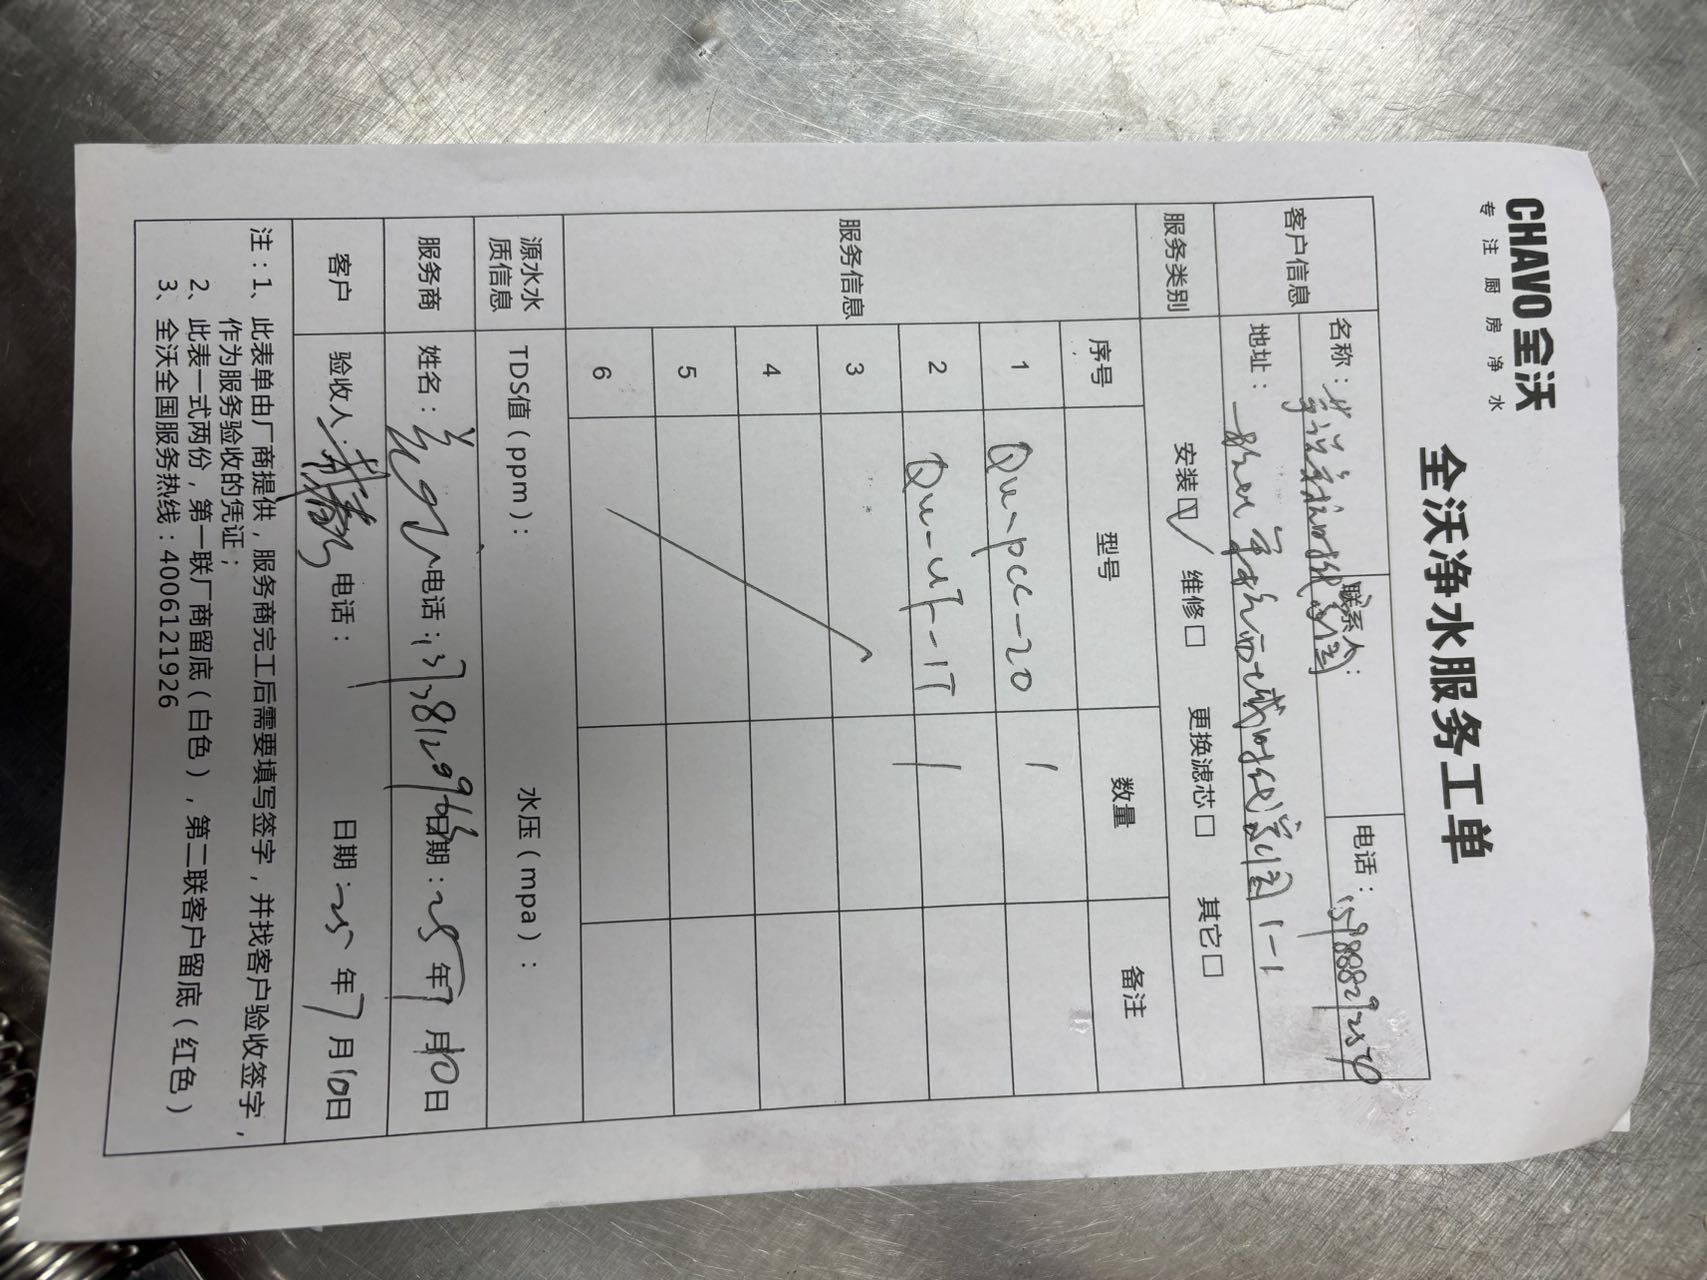 CHAVO 全沃
专注厨房净水
全沃净水服务工单
客户信息
名称：
联系人：
电话：15988829250
地址：
1-1
服务类别
安装☑ 维修□ 更换滤芯□ 其它□
服务信息
序号 型号 数量 备注
1 Qw-pcc-20 1
2 Qw-UF-1T 1
3
4
5
6
源水水质信息
TDS值（ppm）： 水压（mpa）：
服务商 姓名： 电话：13381299613 日期：25年7月10日
客户 验收人： 电话： 日期：25年7月10日
注：1、此表单由厂商提供，服务商完工后需要填写签字，并找客户验收签字，
作为服务验收的凭证；
2、此表一式两份，第一联厂商留底（白色），第二联客户留底（红色）
3、全沃全国服务热线：4006121926